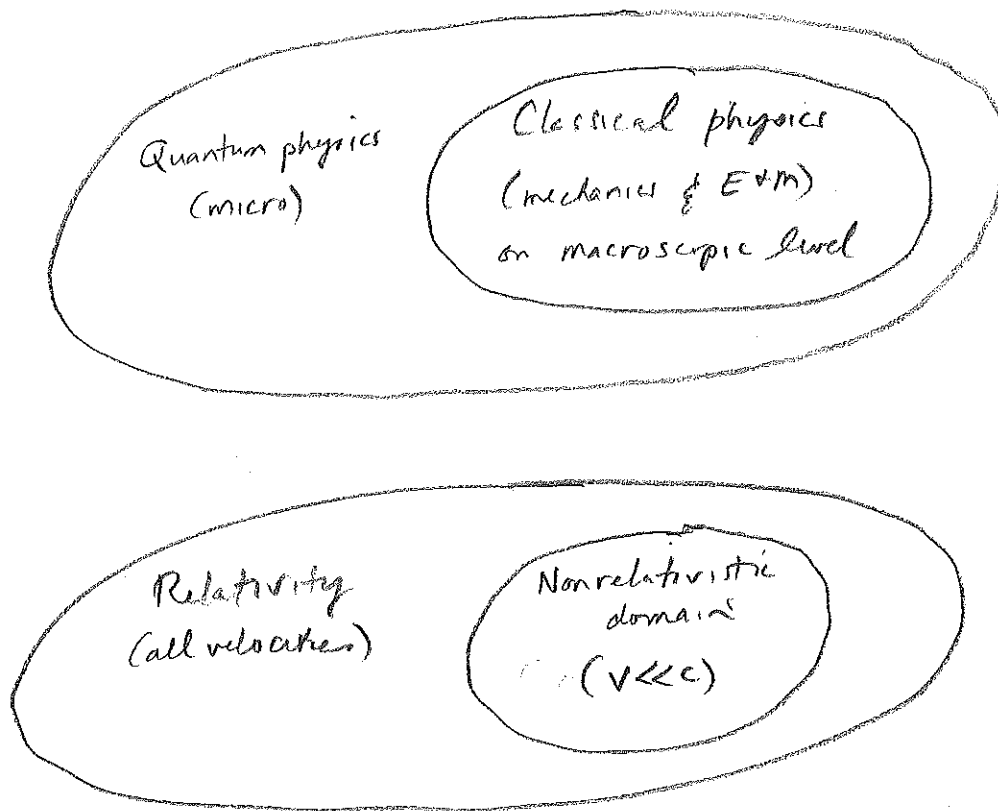 Quantum physics
(micro)
Classical physics
(mechanics & E+M)
on macroscopic level
Relativity
(all velocities)
Nonrelativistic
domain
(v<<c)